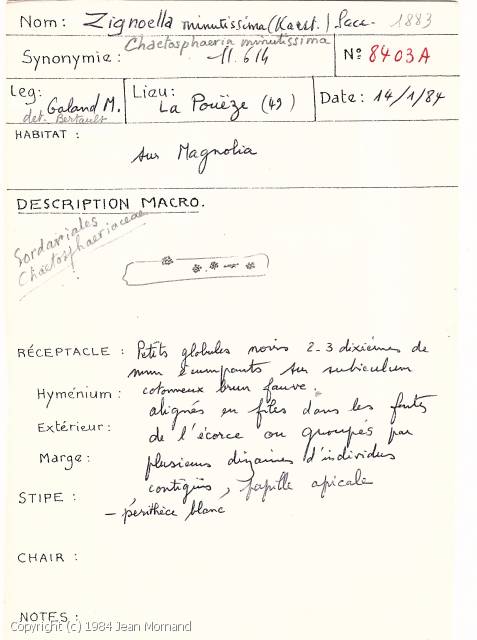 Nom: Zignoella minutissima (Karst.) Sacc. 1883
Chaetosphaeria minutissima
Synonymie: 11.614
N° 8403A
Leg: Galand M.
det. Bertault
Lieu: La Pouëze (49)
Date: 14/1/84
HABITAT :
sur Magnolia
DESCRIPTION MACRO.
Sordariales
Chaetosphaeriaceae
RÉCEPTACLE : Petits globules noirs 2-3 dixièmes de
mm érumpants sur subiculum
Hyménium : cotonneux brun fauve.
alignés en files dans les fentes
Extérieur: de l'écorce ou groupés par
Marge: plusieurs dizaines d'individus
STIPE : contigüs, papille apicale
- périthèce blanc
CHAIR :
NOTES :
Copyright (c) 1984 Jean Mornand